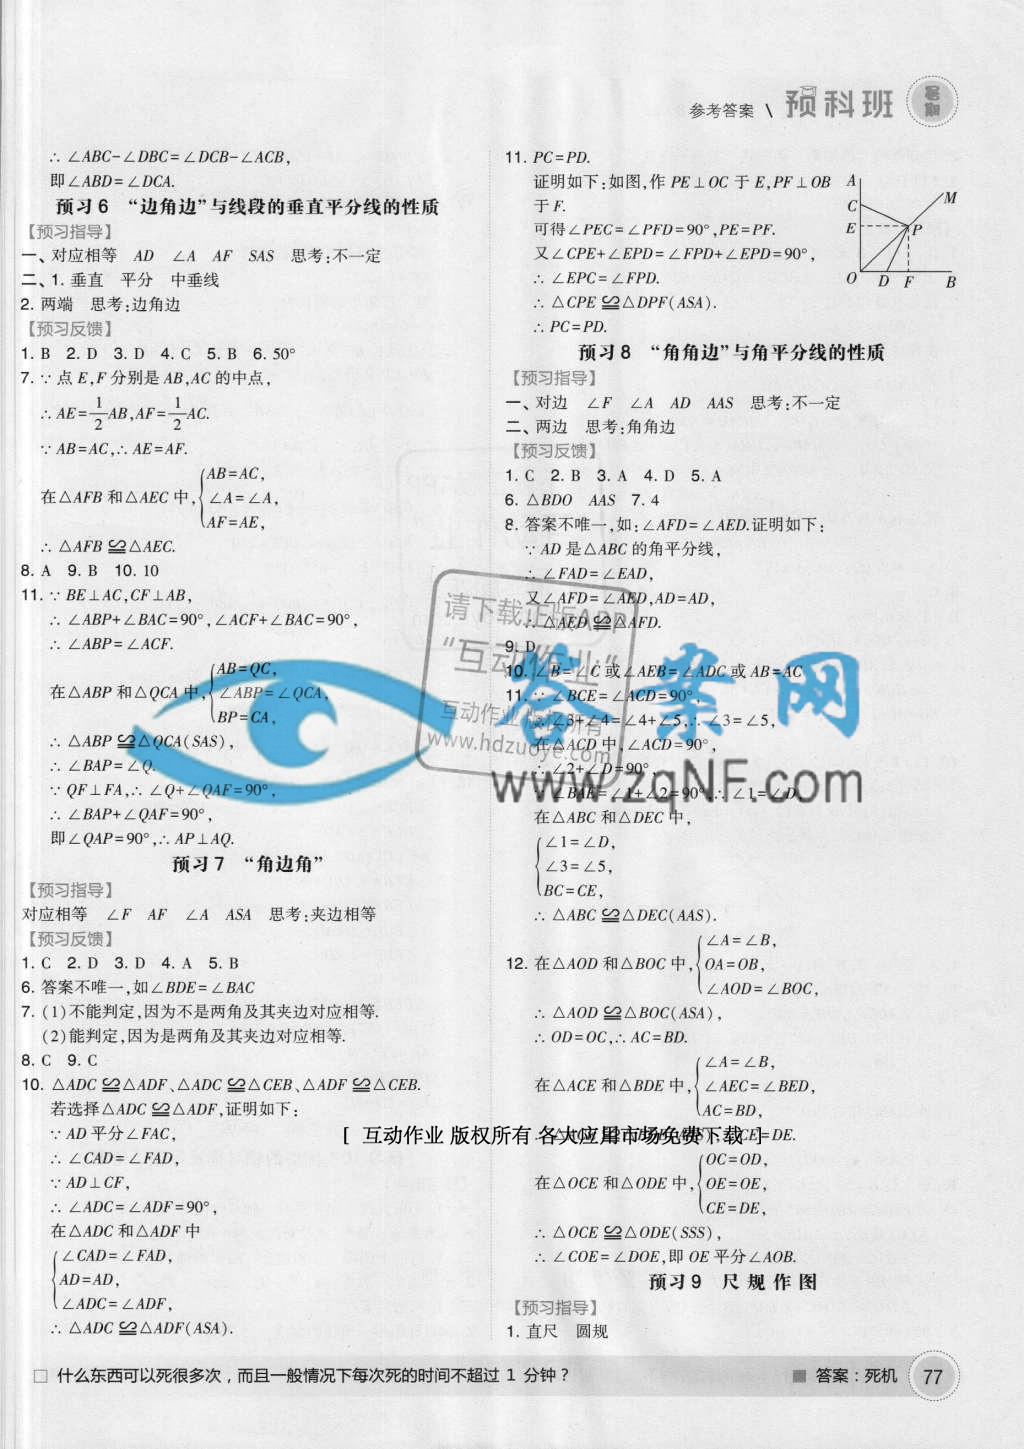 参考答案 \ 预科班 暑期
∴ ∠ABC-∠DBC=∠DCB-∠ACB,
即∠ABD=∠DCA.
预习6 “边角边”与线段的垂直平分线的性质
【预习指导】
一、对应相等 AD ∠A AF SAS 思考:不一定
二、1. 垂直 平分 中垂线
2. 两端 思考:边角边
【预习反馈】
1. B 2. D 3. D 4. C 5. B 6. 50°
7. ∵ 点 E,F 分别是 AB,AC 的中点,
∴ AE=1/2AB,AF=1/2AC.
∵ AB=AC,∴ AE=AF.
在△AFB 和△AEC 中,{AB=AC,
∠A=∠A,
AF=AE,
∴ △AFB≌△AEC.
8. A 9. B 10. 10
11. ∵ BE⊥AC,CF⊥AB,
∴ ∠ABP+∠BAC=90°,∠ACF+∠BAC=90°,
∴ ∠ABP=∠ACF.
在△ABP 和△QCA 中,{AB=QC,
∠ABP=∠QCA,
BP=CA,
∴ △ABP≌△QCA(SAS),
∴ ∠BAP=∠Q.
∵ QF⊥FA,∴ ∠Q+∠QAF=90°,
∴ ∠BAP+∠QAF=90°,
即∠QAP=90°,∴ AP⊥AQ.
预习7 “角边角”
【预习指导】
对应相等 ∠F AF ∠A ASA 思考:夹边相等
【预习反馈】
1. C 2. D 3. D 4. A 5. B
6. 答案不唯一,如∠BDE=∠BAC
7. (1)不能判定,因为不是两角及其夹边对应相等.
(2)能判定,因为是两角及其夹边对应相等.
8. C 9. C
10. △ADC≌△ADF、△ADC≌△CEB、△ADF≌△CEB.
若选择△ADC≌△ADF,证明如下:
∵ AD 平分∠FAC,
∴ ∠CAD=∠FAD,
∵ AD⊥CF,
∴ ∠ADC=∠ADF=90°,
在△ADC 和△ADF 中
{∠CAD=∠FAD,
AD=AD,
∠ADC=∠ADF,
∴ △ADC≌△ADF(ASA).
11. PC=PD.
证明如下:如图,作 PE⊥OC 于 E,PF⊥OB
于 F.
可得∠PEC=∠PFD=90°,PE=PF.
又∠CPE+∠EPD=∠FPD+∠EPD=90°,
∴ ∠EPC=∠FPD.
∴ △CPE≌△DPF(ASA).
∴ PC=PD.
A
C
E
O D F B
P
M
预习8 “角角边”与角平分线的性质
【预习指导】
一、对边 ∠F ∠A AD AAS 思考:不一定
二、两边 思考:角角边
【预习反馈】
1. C 2. B 3. A 4. D 5. A
6. △BDO AAS 7. 4
8. 答案不唯一,如:∠AFD=∠AED.证明如下:
∵ AD 是△ABC 的角平分线,
∴ ∠FAD=∠EAD,
又∠AFD=∠AED,AD=AD,
∴ △AED≌△AFD.
9. D
10. ∠B=∠C 或∠AEB=∠ADC 或 AB=AC
11. ∵ ∠BCE=∠ACD=90°,
∴ ∠3+∠4=∠4+∠5,∴ ∠3=∠5,
在△ACD 中,∠ACD=90°,
∴ ∠2+∠D=90°,
∵ ∠BAE=∠1+∠2=90°,∴ ∠1=∠D,
在△ABC 和△DEC 中,
{∠1=∠D,
∠3=∠5,
BC=CE,
∴ △ABC≌△DEC(AAS).
12. 在△AOD 和△BOC 中,{∠A=∠B,
OA=OB,
∠AOD=∠BOC,
∴ △AOD≌△BOC(ASA),
∴ OD=OC,∴ AC=BD.
在△ACE 和△BDE 中,{∠A=∠B,
∠AEC=∠BED,
AC=BD,
CE=DE.
在△OCE 和△ODE 中,{OC=OD,
OE=OE,
CE=DE,
∴ △OCE≌△ODE(SSS),
∴ ∠COE=∠DOE,即 OE 平分∠AOB.
预习9 尺规作图
【预习指导】
1. 直尺 圆规
请下载正版APP
“互动作业”
互动作业 版权所有
www.hdzuoye.com
答案网
www.zqNF.com
[ 互动作业 版权所有 各大应用市场免费下载 ]
□ 什么东西可以死很多次，而且一般情况下每次死的时间不超过 1 分钟？ ■ 答案：死机 77